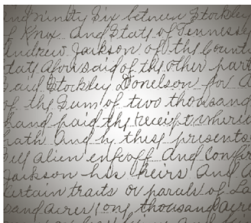 and ninety Six between Stockley
of Knox And State of Tennessee
Andrew Jackson of the County
State aforesaid of the other part
said Stockley Donelson for
of the Sum of two thousand
hand paid the Receipt where
hath And by these presents
sell alien enfeoff And Confir
Jackson his heirs And A
certain tracts or parcels of L
sand Acres (one thousand acres